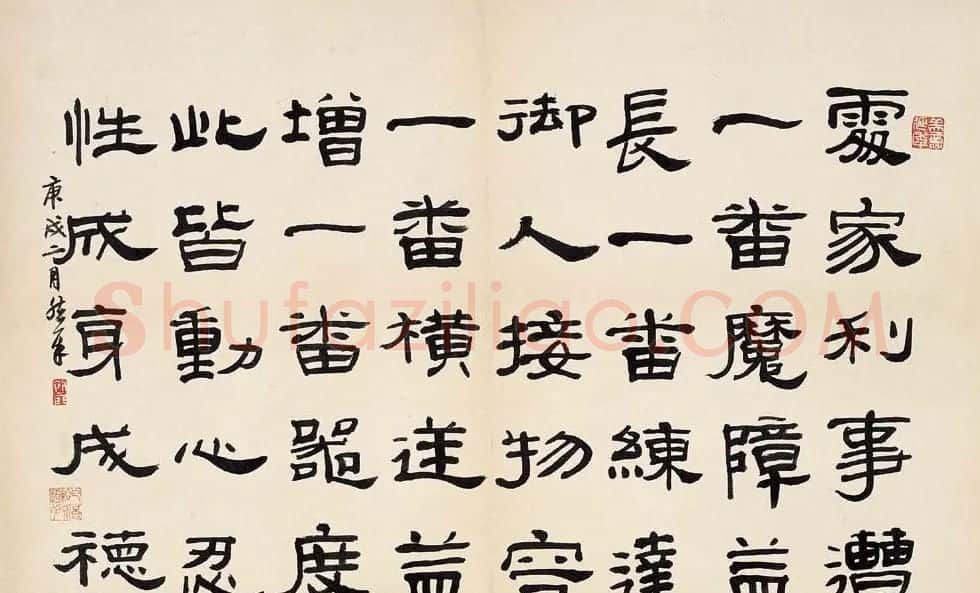 處家利事遭
一番魔障益
長一番練達
御人接物容
一番橫逆益
增一番器度
此皆動心忍
性成身成德
庚戌二月
Shufaziliao.COM